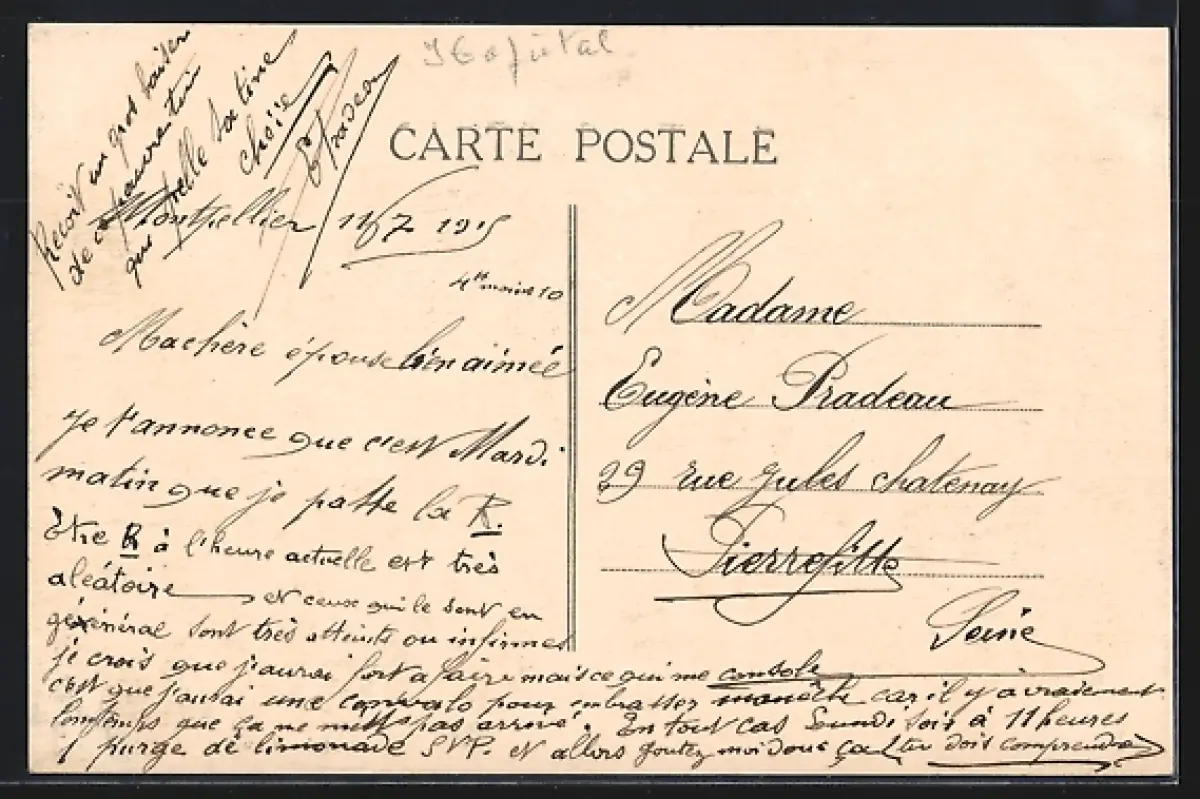 Hôpital
CARTE POSTALE
Reçoit un gros baiser
de
que
chérie
EPradeau
Montpellier 11/7 1915
4h moins 10
Ma chère épouse bien aimée
je t'annonce que c'est Mardi
matin que je passe la R.
Être R à l'heure actuelle est très
aléatoire et ceux qui le sont en
général sont très atteints ou infirmes
je crois que j'aurai fort a faire mais ce qui me console
c'est que j'aurai une convalo pour embrasser car il y a vraiment
longtemps que ça ne m'est pas arrivé. En tout cas Lundi soir à 11 heures
1 purge de limonade SVP. et alors goutez moi donc ça (tu dois comprendre)
Madame
Eugène Pradeau
29 rue Jules Chatenay
Pierrefitte
Seine